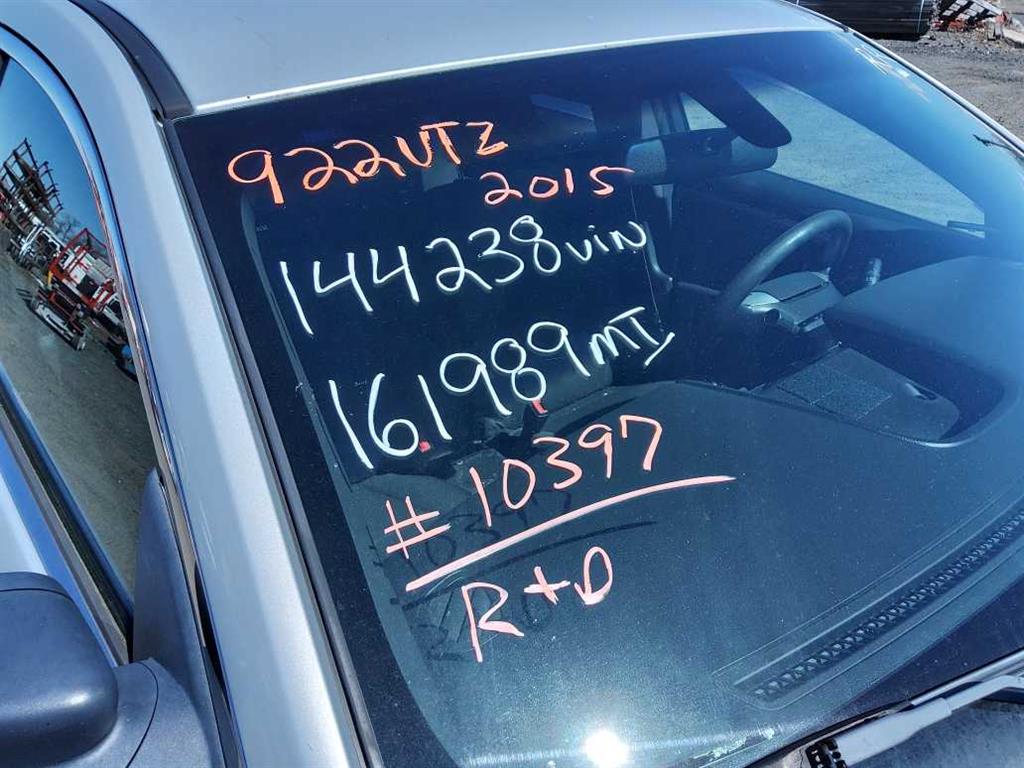 922UTZ
2015
144238VIN
161989MI
#10397
R+D